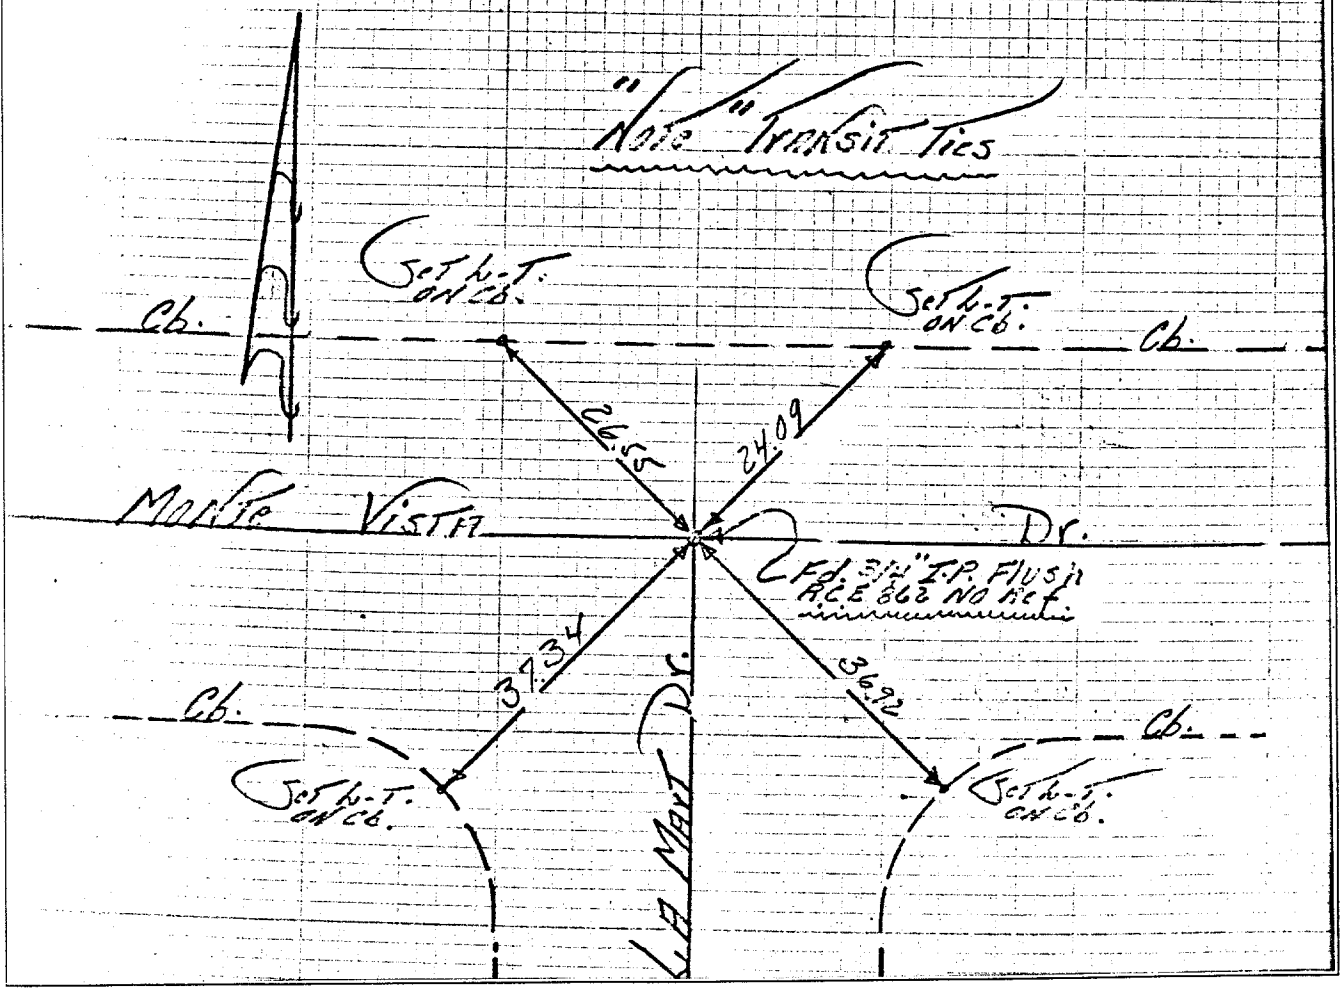 "Note" Transit Ties
Set L-T.
on Cb.
Set L-T.
on Cb.
Cb.
Cb.
26.55
24.09
Monte Vista Dr.
Fd. 3/4" I.P. Flush
RCE 862 No Ref.
37.34
36.92
Cb.
Cb.
Set L-T.
on Cb.
Set L-T.
on Cb.
La Mart Dr.